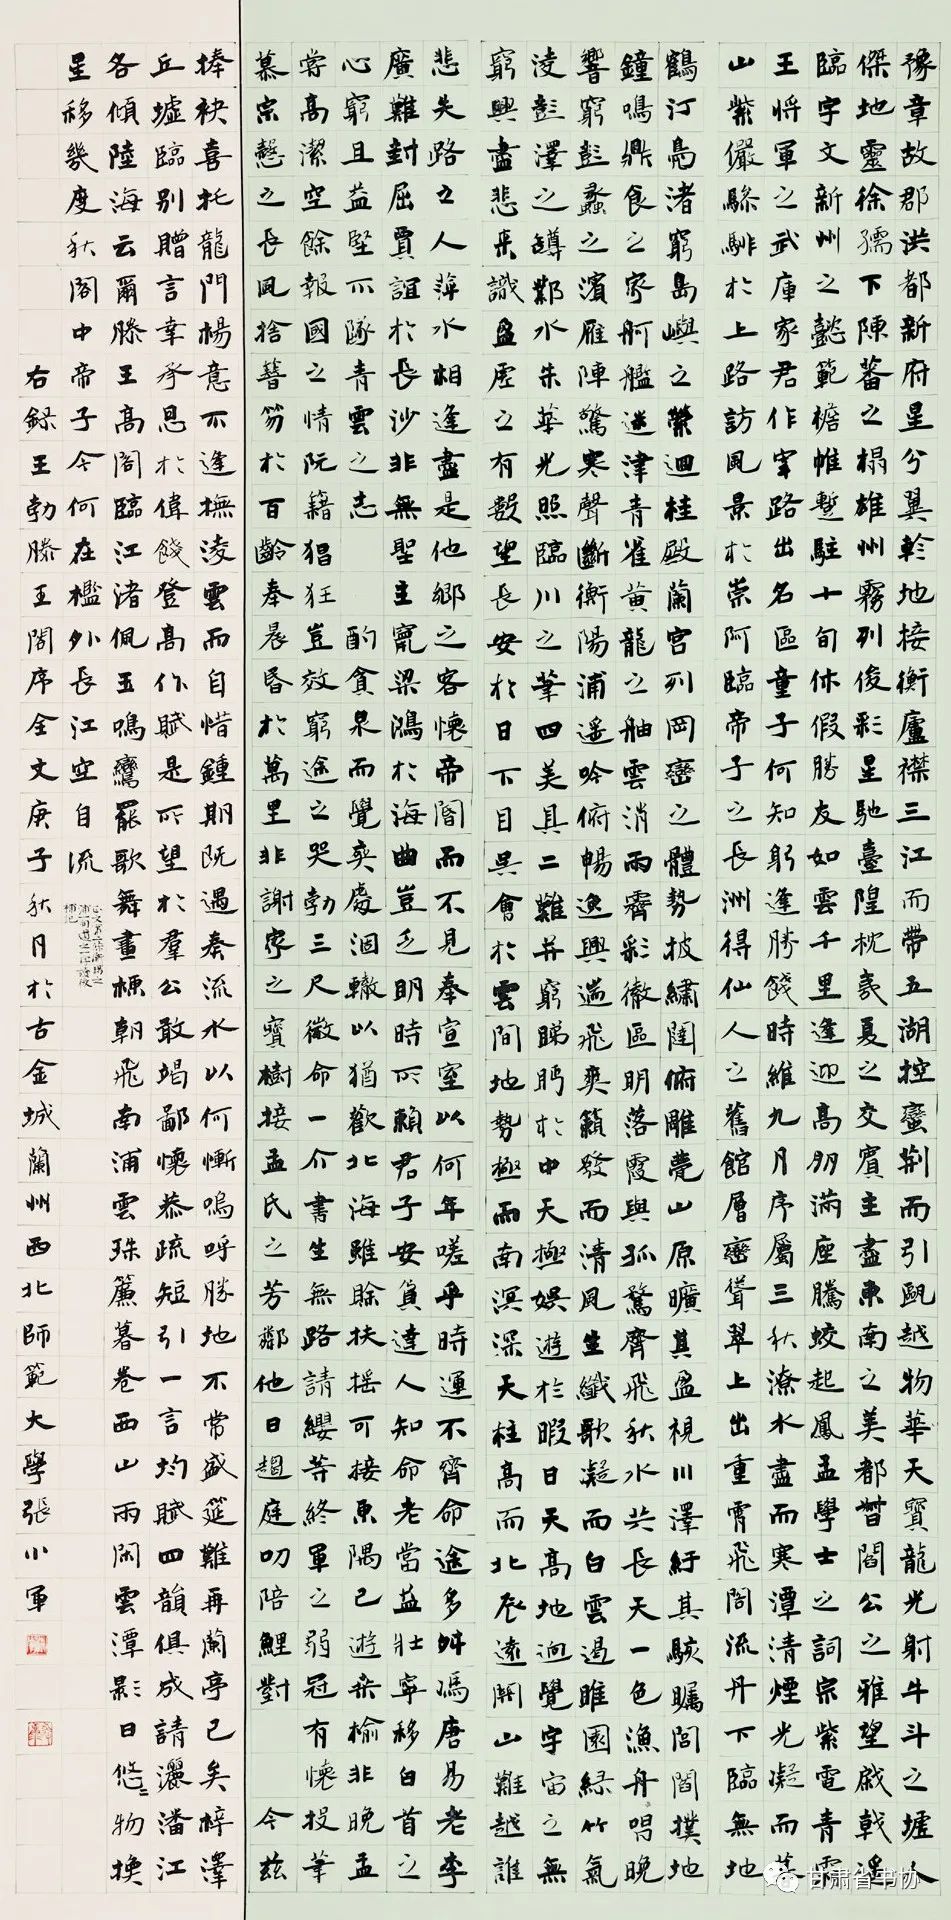 豫章故郡洪都新府星分翼軫地接衡廬襟三江而帶五湖控蠻荊而引甌越物華天寶龍光射牛斗之墟人
傑地靈徐孺下陳蕃之榻雄州霧列俊彩星馳臺隍枕夷夏之交賓主盡東南之美都督閻公之雅望棨戟遥
臨宇文新州之懿範襜帷暫駐十旬休假勝友如雲千里逢迎高朋滿座騰蛟起鳳孟學士之詞宗紫電青霜
王將軍之武庫家君作宰路出名區童子何知躬逢勝餞時維九月序屬三秋潦水盡而寒潭清煙光凝而暮
山紫儼驂騑於上路訪風景於崇阿臨帝子之長洲得仙人之舊館層巒聳翠上出重霄飛閣流丹下臨無地
鶴汀鳧渚窮島嶼之縈迴桂殿蘭宮列岡巒之體勢披繡闥俯雕甍山原曠其盈視川澤紆其駭矚閭閻撲地
鐘鳴鼎食之家舸艦迷津青雀黃龍之舳雲消雨霽彩徹區明落霞與孤鶩齊飛秋水共長天一色漁舟唱晚
響窮彭蠡之濱雁陣驚寒聲斷衡陽浦遥吟俯暢逸興遄飛爽籟發而清風生纖歌凝而白雲遏睢園綠竹氣
淩彭澤之罇鄴水朱華光照臨川之筆四美具二難并窮睇眄於中天極娛遊於暇日天高地迥覺宇宙之無
窮興盡悲來識盈虛之有數望長安於日下目吳會於雲間地勢極而南溟深天柱高而北辰遠關山難越誰
悲失路之人萍水相逢盡是他鄉之客懷帝閽而不見奉宣室以何年嗟乎時運不齊命途多舛馮唐易老李
廣難封屈賈誼於長沙非無聖主竄梁鴻於海曲豈乏明時所賴君子安貧達人知命老當益壯寧移白首之
心窮且益堅不墜青雲之志 酌貪泉而覺爽處涸轍以猶歡北海雖賒扶搖可接東隅已逝桑榆非晚孟
嘗高潔空餘報國之情阮籍猖狂豈效窮途之哭勃三尺微命一介書生無路請纓等終軍之弱冠 有懷投筆
慕宗慤之長風捨簪笏於百齡奉晨昏於萬里非謝家之寶樹接孟氏之芳鄰他日趨庭叨陪鯉對 今茲
捧袂喜托龍門楊意不逢撫淩雲而自惜鍾期既遇奏流水以何慚嗚呼勝地不常盛筵難再蘭亭已矣梓澤
丘墟臨別贈言幸承恩於偉餞登高作賦是所望於羣公敢竭鄙懷恭疏短引一言均賦四韻俱成請灑潘江
各傾陸海云爾滕王高閣臨江渚佩玉鳴鸞罷歌舞畫棟朝飛南浦雲珠簾暮卷西山雨閑雲潭影日悠〻物換
星移幾度秋閣中帝子今何在檻外長江空自流
右錄王勃滕王閣序全文庚子秋月於古金城蘭州西北師範大學張小軍
甘肃省书协